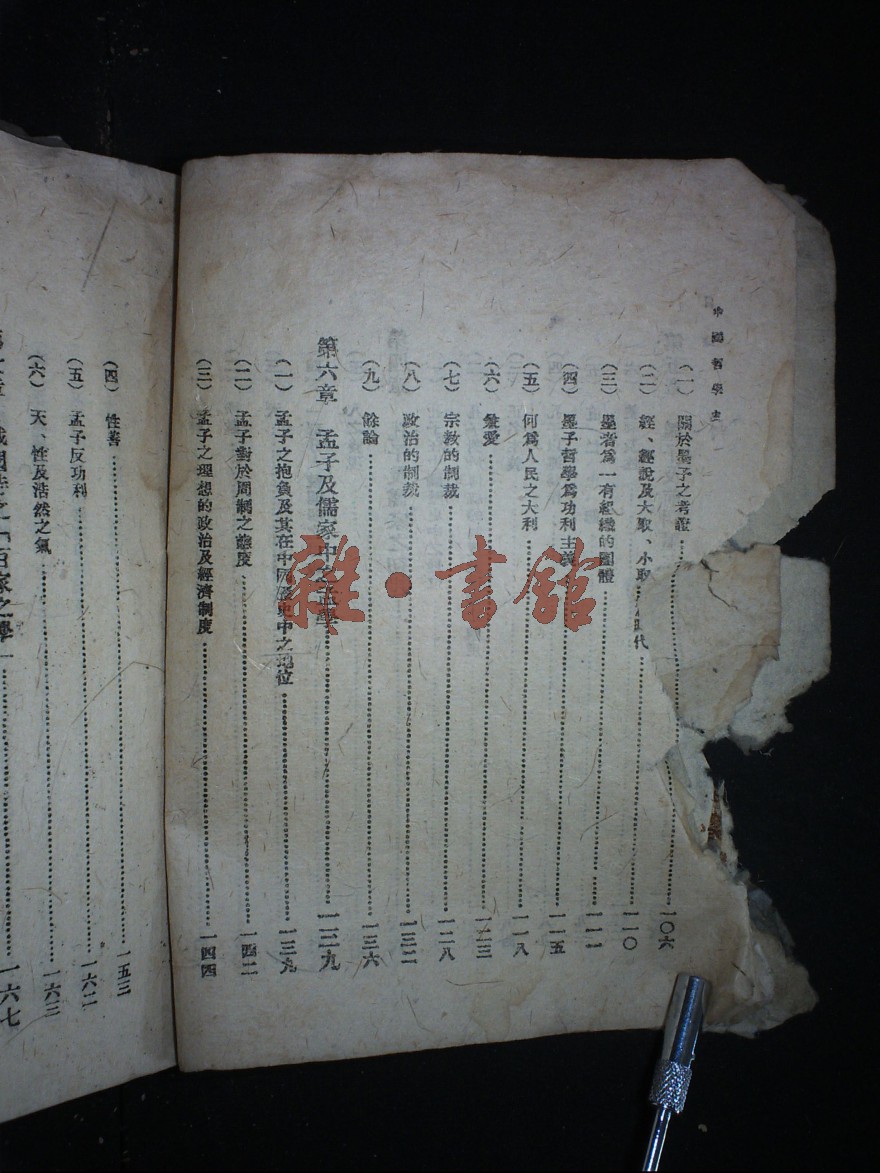 中國哲學史
(一) 關於墨子之考證 一〇六
(二) 經、經說及大取、小取 代 一一〇
(三) 墨者爲一有組織的團體 一一一
(四) 墨子哲學爲功利主義 一一五
(五) 何爲人民之大利 一一八
(六) 兼愛 一二三
(七) 宗教的制裁 一二八
(八) 政治的制裁 一三二
(九) 餘論 一三六
第六章 孟子及儒家中之孟學 一三九
(一) 孟子之抱負及其在中國歷史中之地位 一三九
(二) 孟子對於周制之態度 一四二
(三) 孟子之理想的政治及經濟制度 一四四
(四) 性善 一五三
(五) 孟子反功利 一六二
(六) 天、性及浩然之氣 一六三
章 戰國時之「百家之學」 一六七
雜·書館